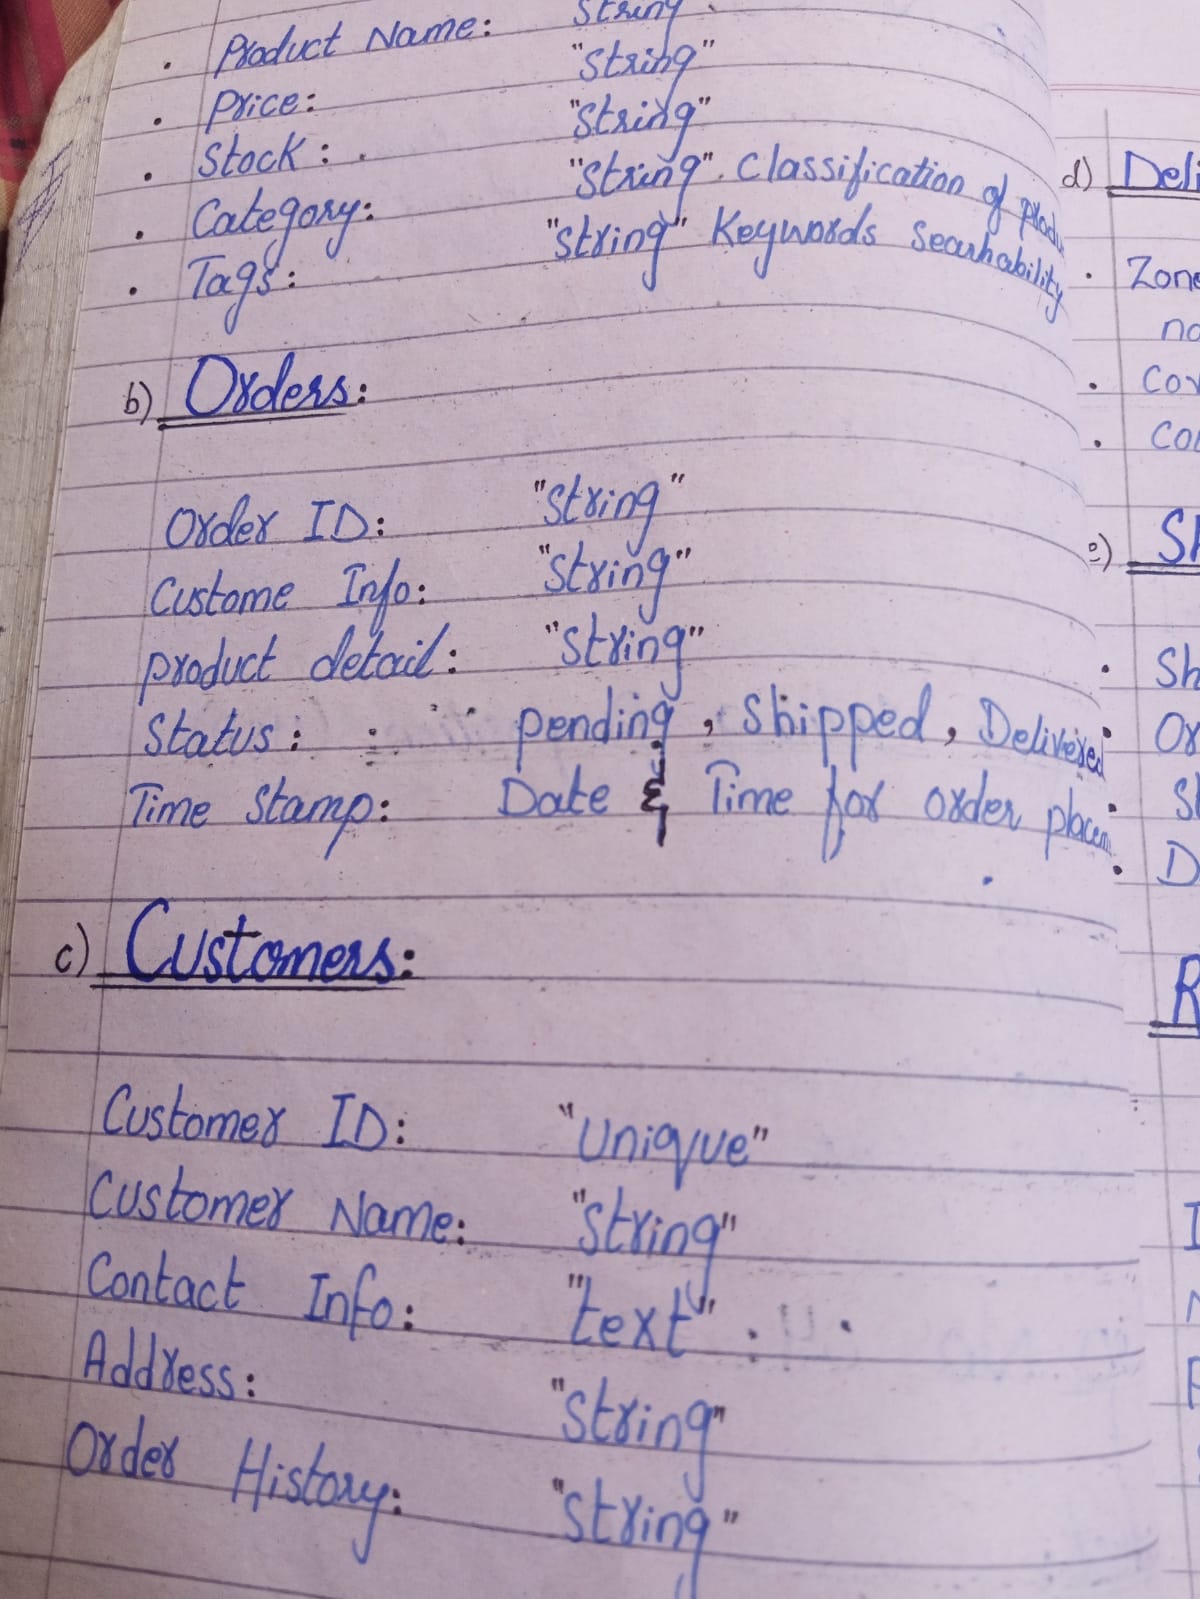 String
• Product Name: "String"
• Price: "String"
• Stock: "String". Classification of
• Category: "String" Keywords Searhability
• Tags:
b) Orders:
Order ID: "String"
Custome Info: "String"
product detail: "String"
Status: pending, Shipped, Delivered
Time Stamp: Date & Time for order
c) Customers:
Customer ID: "Unique"
Customer Name: "String"
Contact Info: "text"
Address: "String"
Order History: "String"
d)
e)